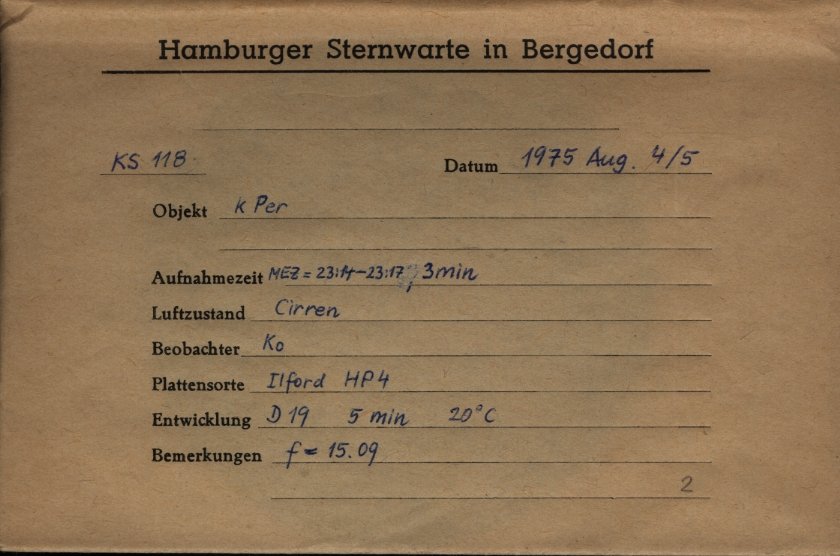 Hamburger Sternwarte in Bergedorf
KS 118 Datum 1975 Aug. 4/5
Objekt k Per
Aufnahmezeit MEZ = 23:14-23:17, 3 min
Luftzustand Cirren
Beobachter Ko
Plattensorte Ilford HP4
Entwicklung D 19 5 min 20°C
Bemerkungen f = 15.09
2